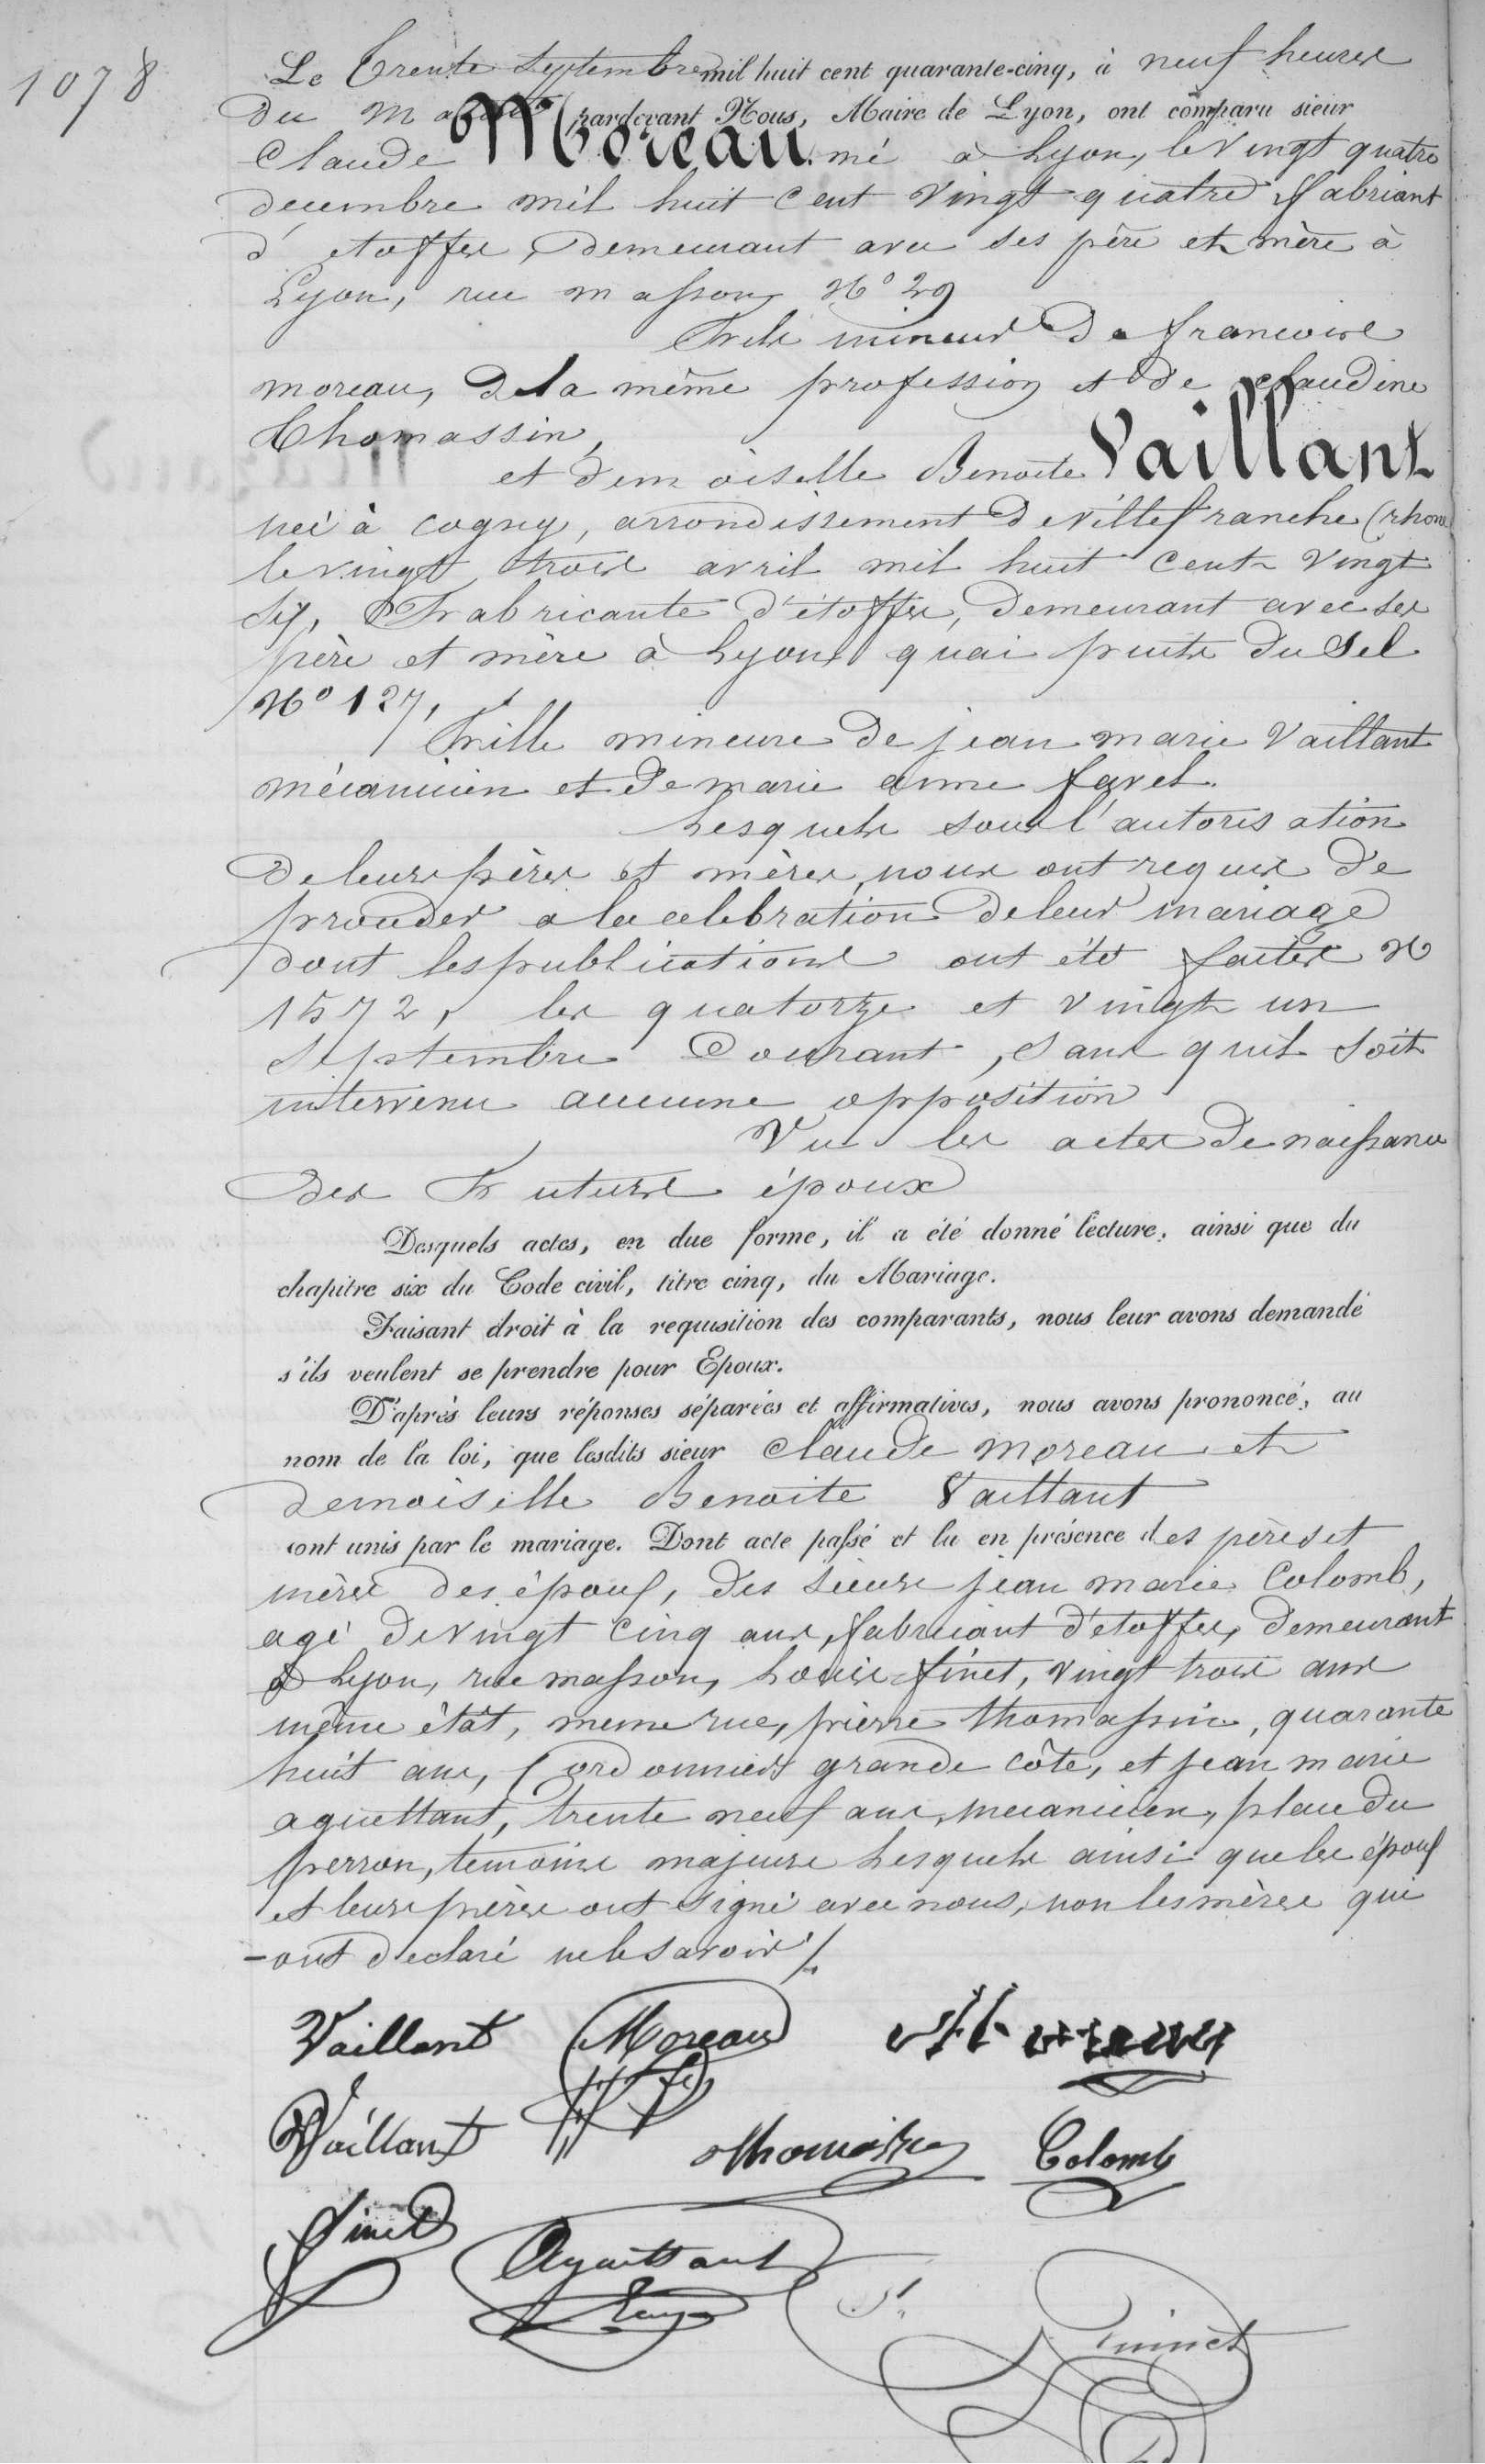 1078
Le Trente Septembre mil huit cent quarante-cinq, à neuf heures
du matin pardevant Nous, Maire de Lyon, ont comparu sieur
Claude Moreau né à Lyon, le vingt quatre
decembre mil huit cent vingt quatre fabriant
d'etoffes, demeurant avec ses père et mère à
Lyon, rue masson N° 29
Fils mineur de francois
moreau, de la même profession et de claudine
Thomassin,
et demoiselle Benoite Vaillant
née à cogny, arrondissement de villefranche (rhone
le vingt trois avril mil huit cent vingt
six, Fabricante d'étoffes, demeurant avec ses
père et mère à Lyon quai puits du Sel
N° 127,
Fille mineure de jean marie Vaillant
mécanicien et de marie anne favel.
Lesquels sous l'autorisation
de leurs pères et mères, nous ont requis de
proceder a la celebration de leur mariage
dont les publications ont été faites N
1572, les quatorze et vingt un
septembre Courant, sans quil soit
intervenu aucune opposition
Vu les actes de naissance
des Futurs époux
Desquels actes, en due forme, il a été donné lecture, ainsi que du
chapitre six du Code civil, titre cinq, du Mariage.
Faisant droit à la requisition des comparants, nous leur avons demandé
s'ils veulent se prendre pour Epoux.
D'après leurs réponses séparées et affirmatives, nous avons prononcé, au
nom de la loi, que lesdits sieur Claude moreau et
demoiselle Benoite Vaillant
sont unis par le mariage. Dont acte passé et lu en présence des pères et
mères des époux, des sieurs jean marie Colomb,
agé de vingt cinq ans, fabriciant d'etoffes, demeurant
à Lyon, rue masson, Louis finet, vingt trois ans
même état, meme rue, pierre thomassin, quarante
huit ans, Cordonnier grande côte, et jean marie
aguettant, trente neuf ans, mecanicien, place du
perron, témoins majeurs Lesquels ainsi que les époux
et leurs pères ont signé avec nous, non les mères qui
-ont declaré ne le savoir ./.
Vaillant Moreau Moreau
Vaillant Thomassin Colomb
finet Aguettant
Guinet